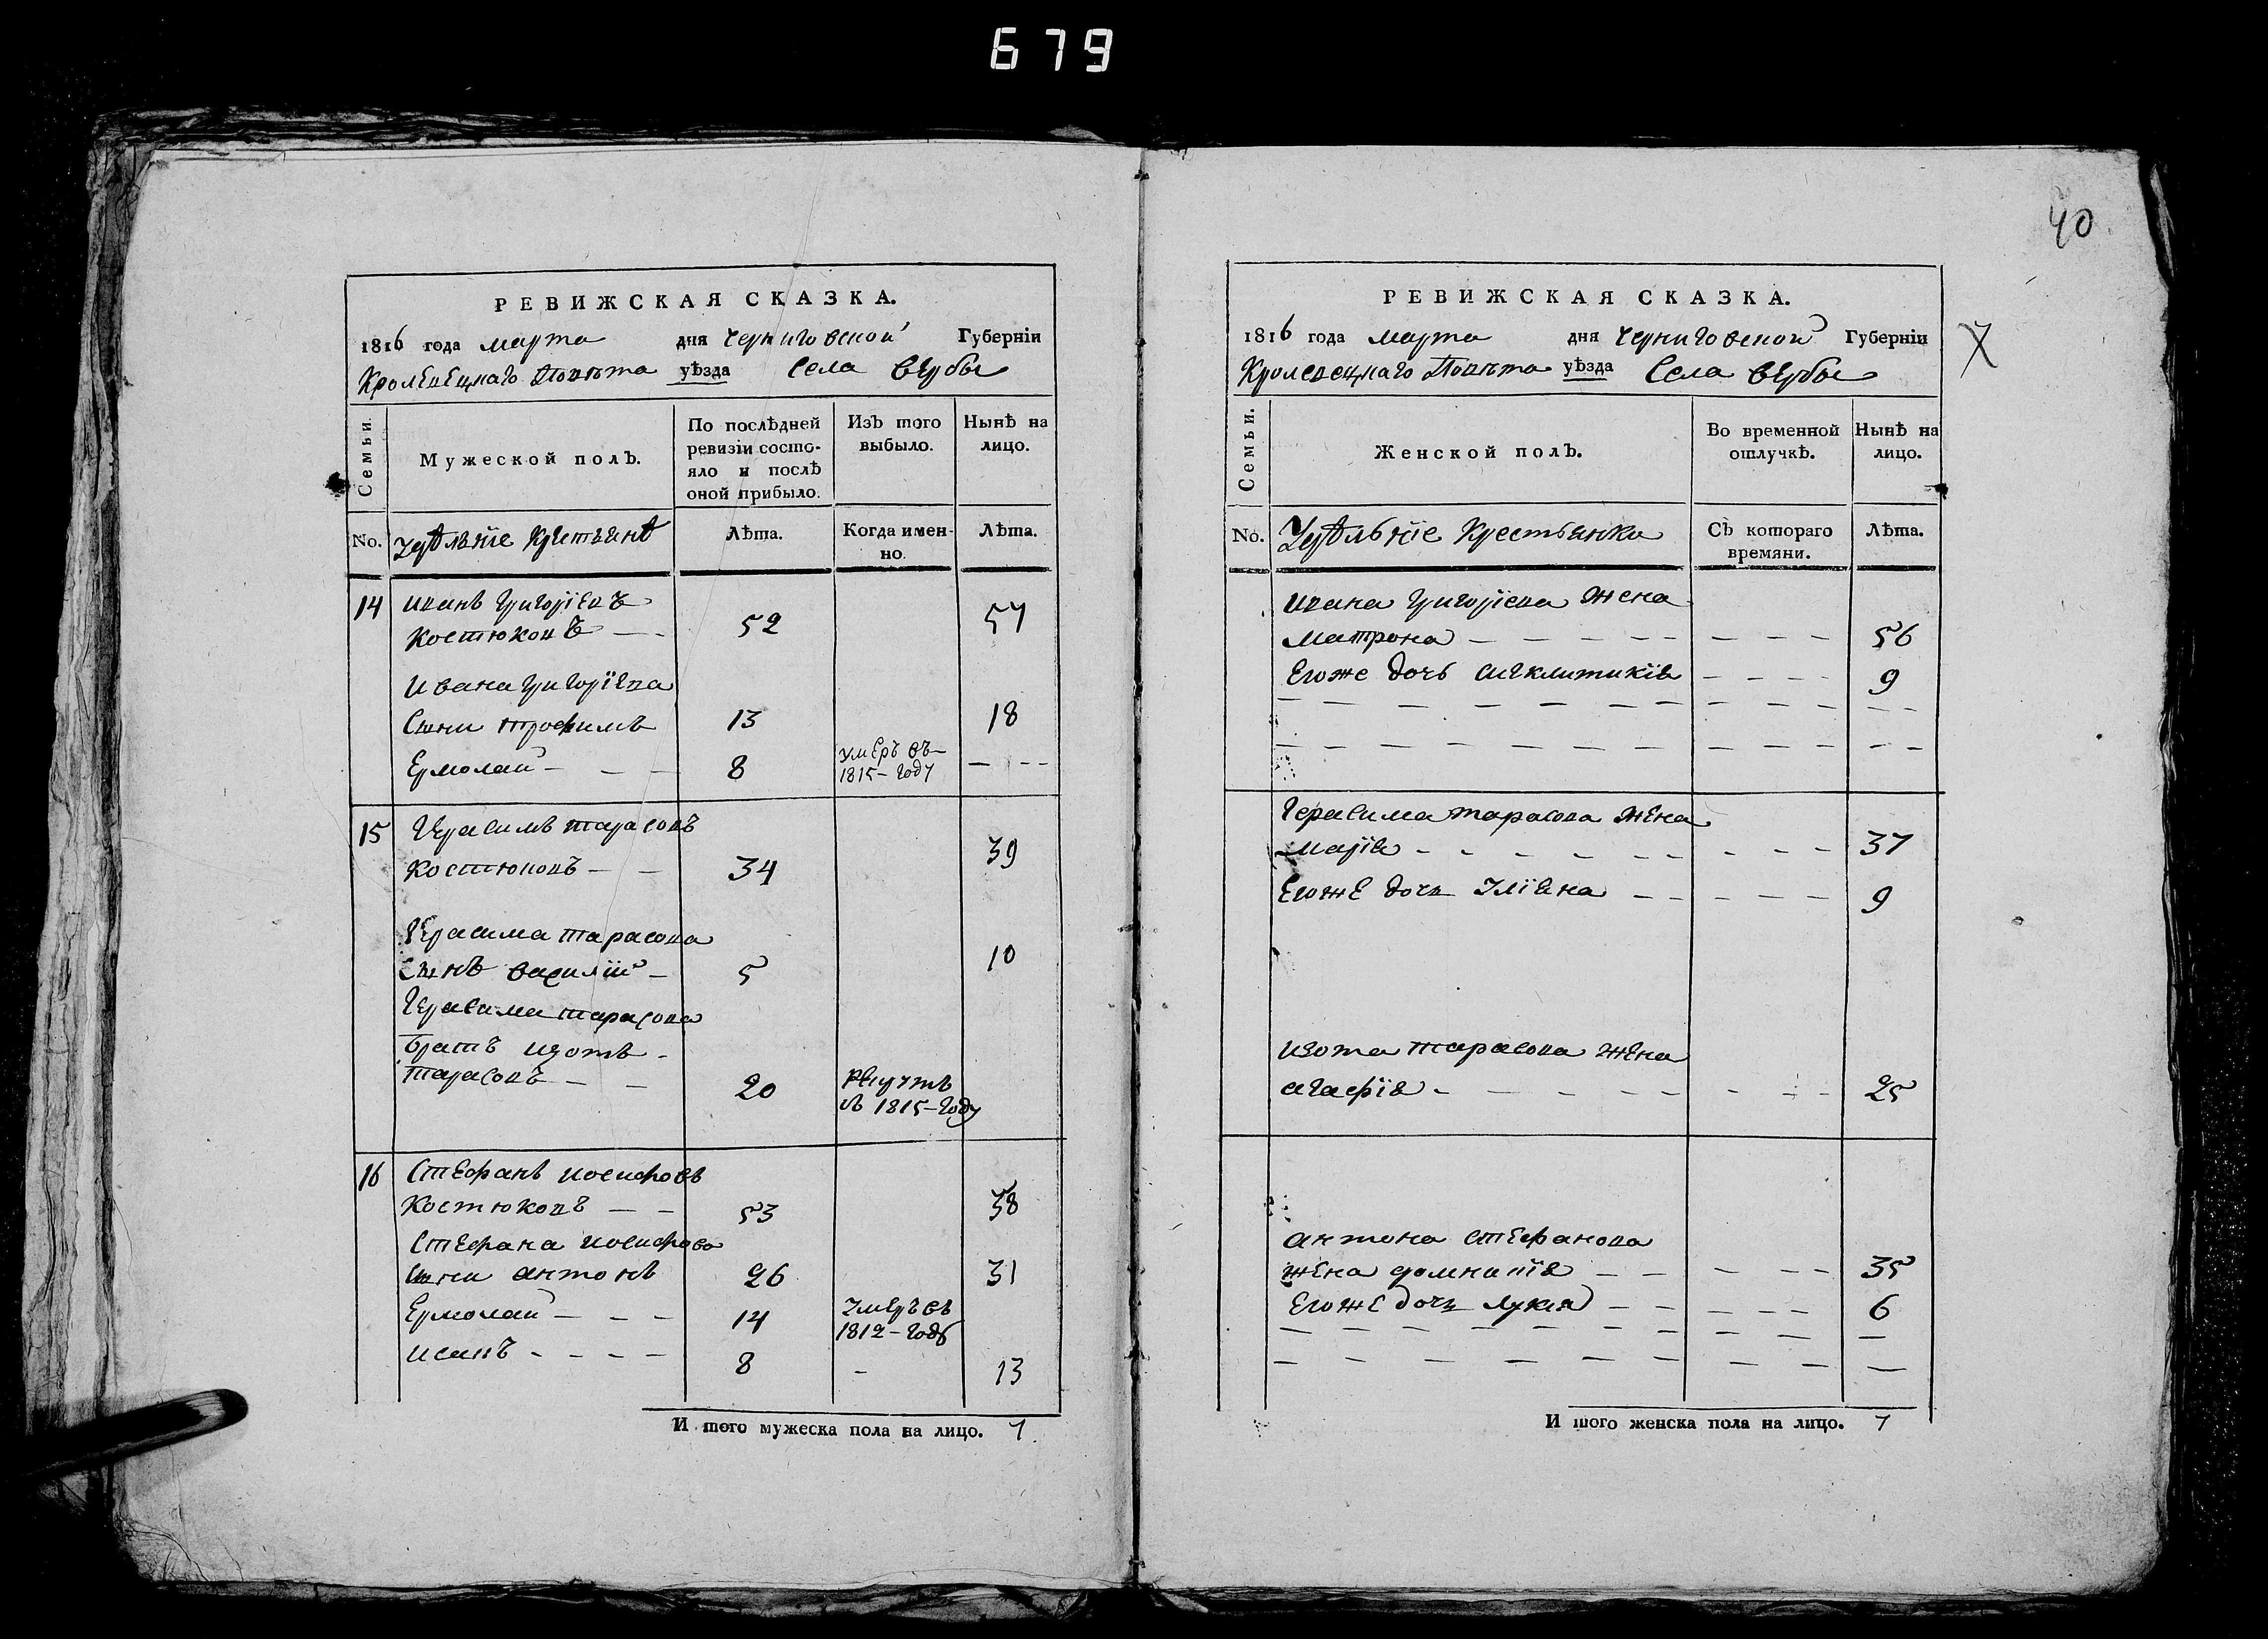 679
40
РЕВИЖСКАЯ СКАЗКА.
1816 года марта дня Черниговской Губерніи
Кролевецкаго Повѣта уѣзда Села Вербы
Семьи.
Мужеской полъ.
По послѣдней ревизіи состояло и послѣ оной прибыло.
Изъ того выбыло.
Нынѣ на лицо.
No.
Удѣльніе Крестьянѣ
Лѣта.
Когда именно.
Лѣта.
14 Иванъ Григоріевъ
Костюковъ — 52 57
Ивана Григоріева
Сыни Трофимъ 13 18
Ермолай — — — 8 умеръ въ 1815-году — — —
15 Герасимъ Тарасовъ
Костюковъ — — 34 39
Герасима Тарасова
Сынъ Василій — 5 10
Герасима Тарасова
Братъ Изотъ -
Тарасовъ — — 20 Рекрутъ въ 1815-году
16 Стефанъ Иосифовъ
Костюковъ — — 53 58
Стефана Иосифова
Сыни Антонъ 26 31
Ермолай — — — 14 Умеръ въ 1812-году
Исаакъ - - - — 8 - 13
И того мужеска пола на лицо. 7
РЕВИЖСКАЯ СКАЗКА.
1816 года марта дня Черниговской Губерніи
Кролевецкаго Повѣта уѣзда Села Вербы
Семьи.
Женской полъ.
Во временной отлучкѣ.
Нынѣ на лицо.
No.
Удѣльніе Крестьянки
Съ котораго времяни.
Лѣта.
Ивана Григоріева жена
Матрона — — — — — — — — 56
Егоже дочь Синклитикія — — — - 9
Герасима Тарасова жена
Марія - - - — - - — - — — 37
Егоже дочь Уліяна — - — - — — 9
Изота Тарасова жена
Агафія - — — — — - - - 25
Антона Стефанова
жена Домникія — — — — — 35
Егоже дочь Лукія — — — — — 6
И того женска пола на лицо. 7